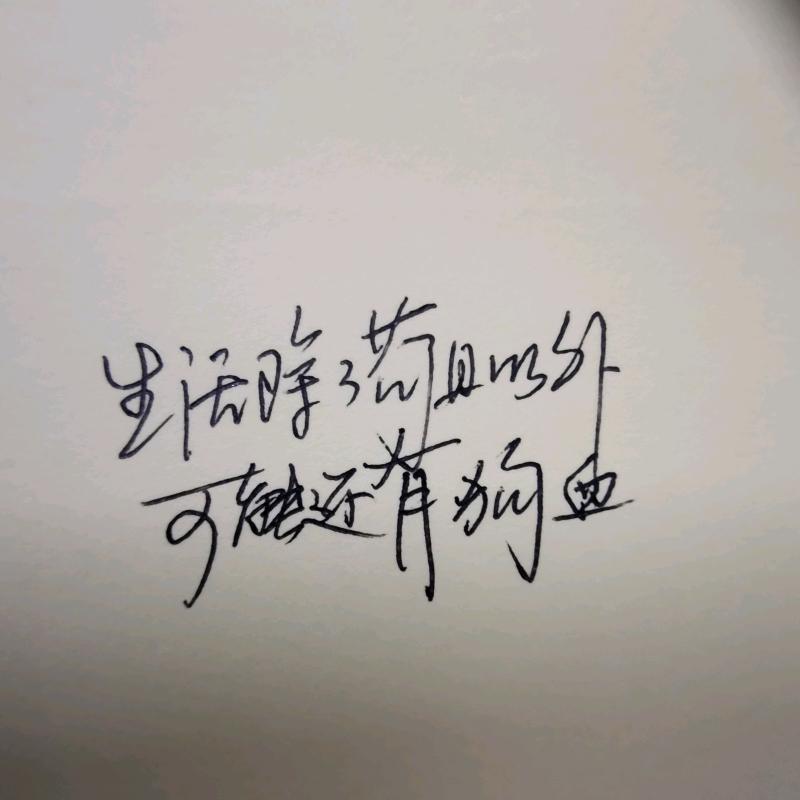 生活除了苟且以外
可能还有狗血